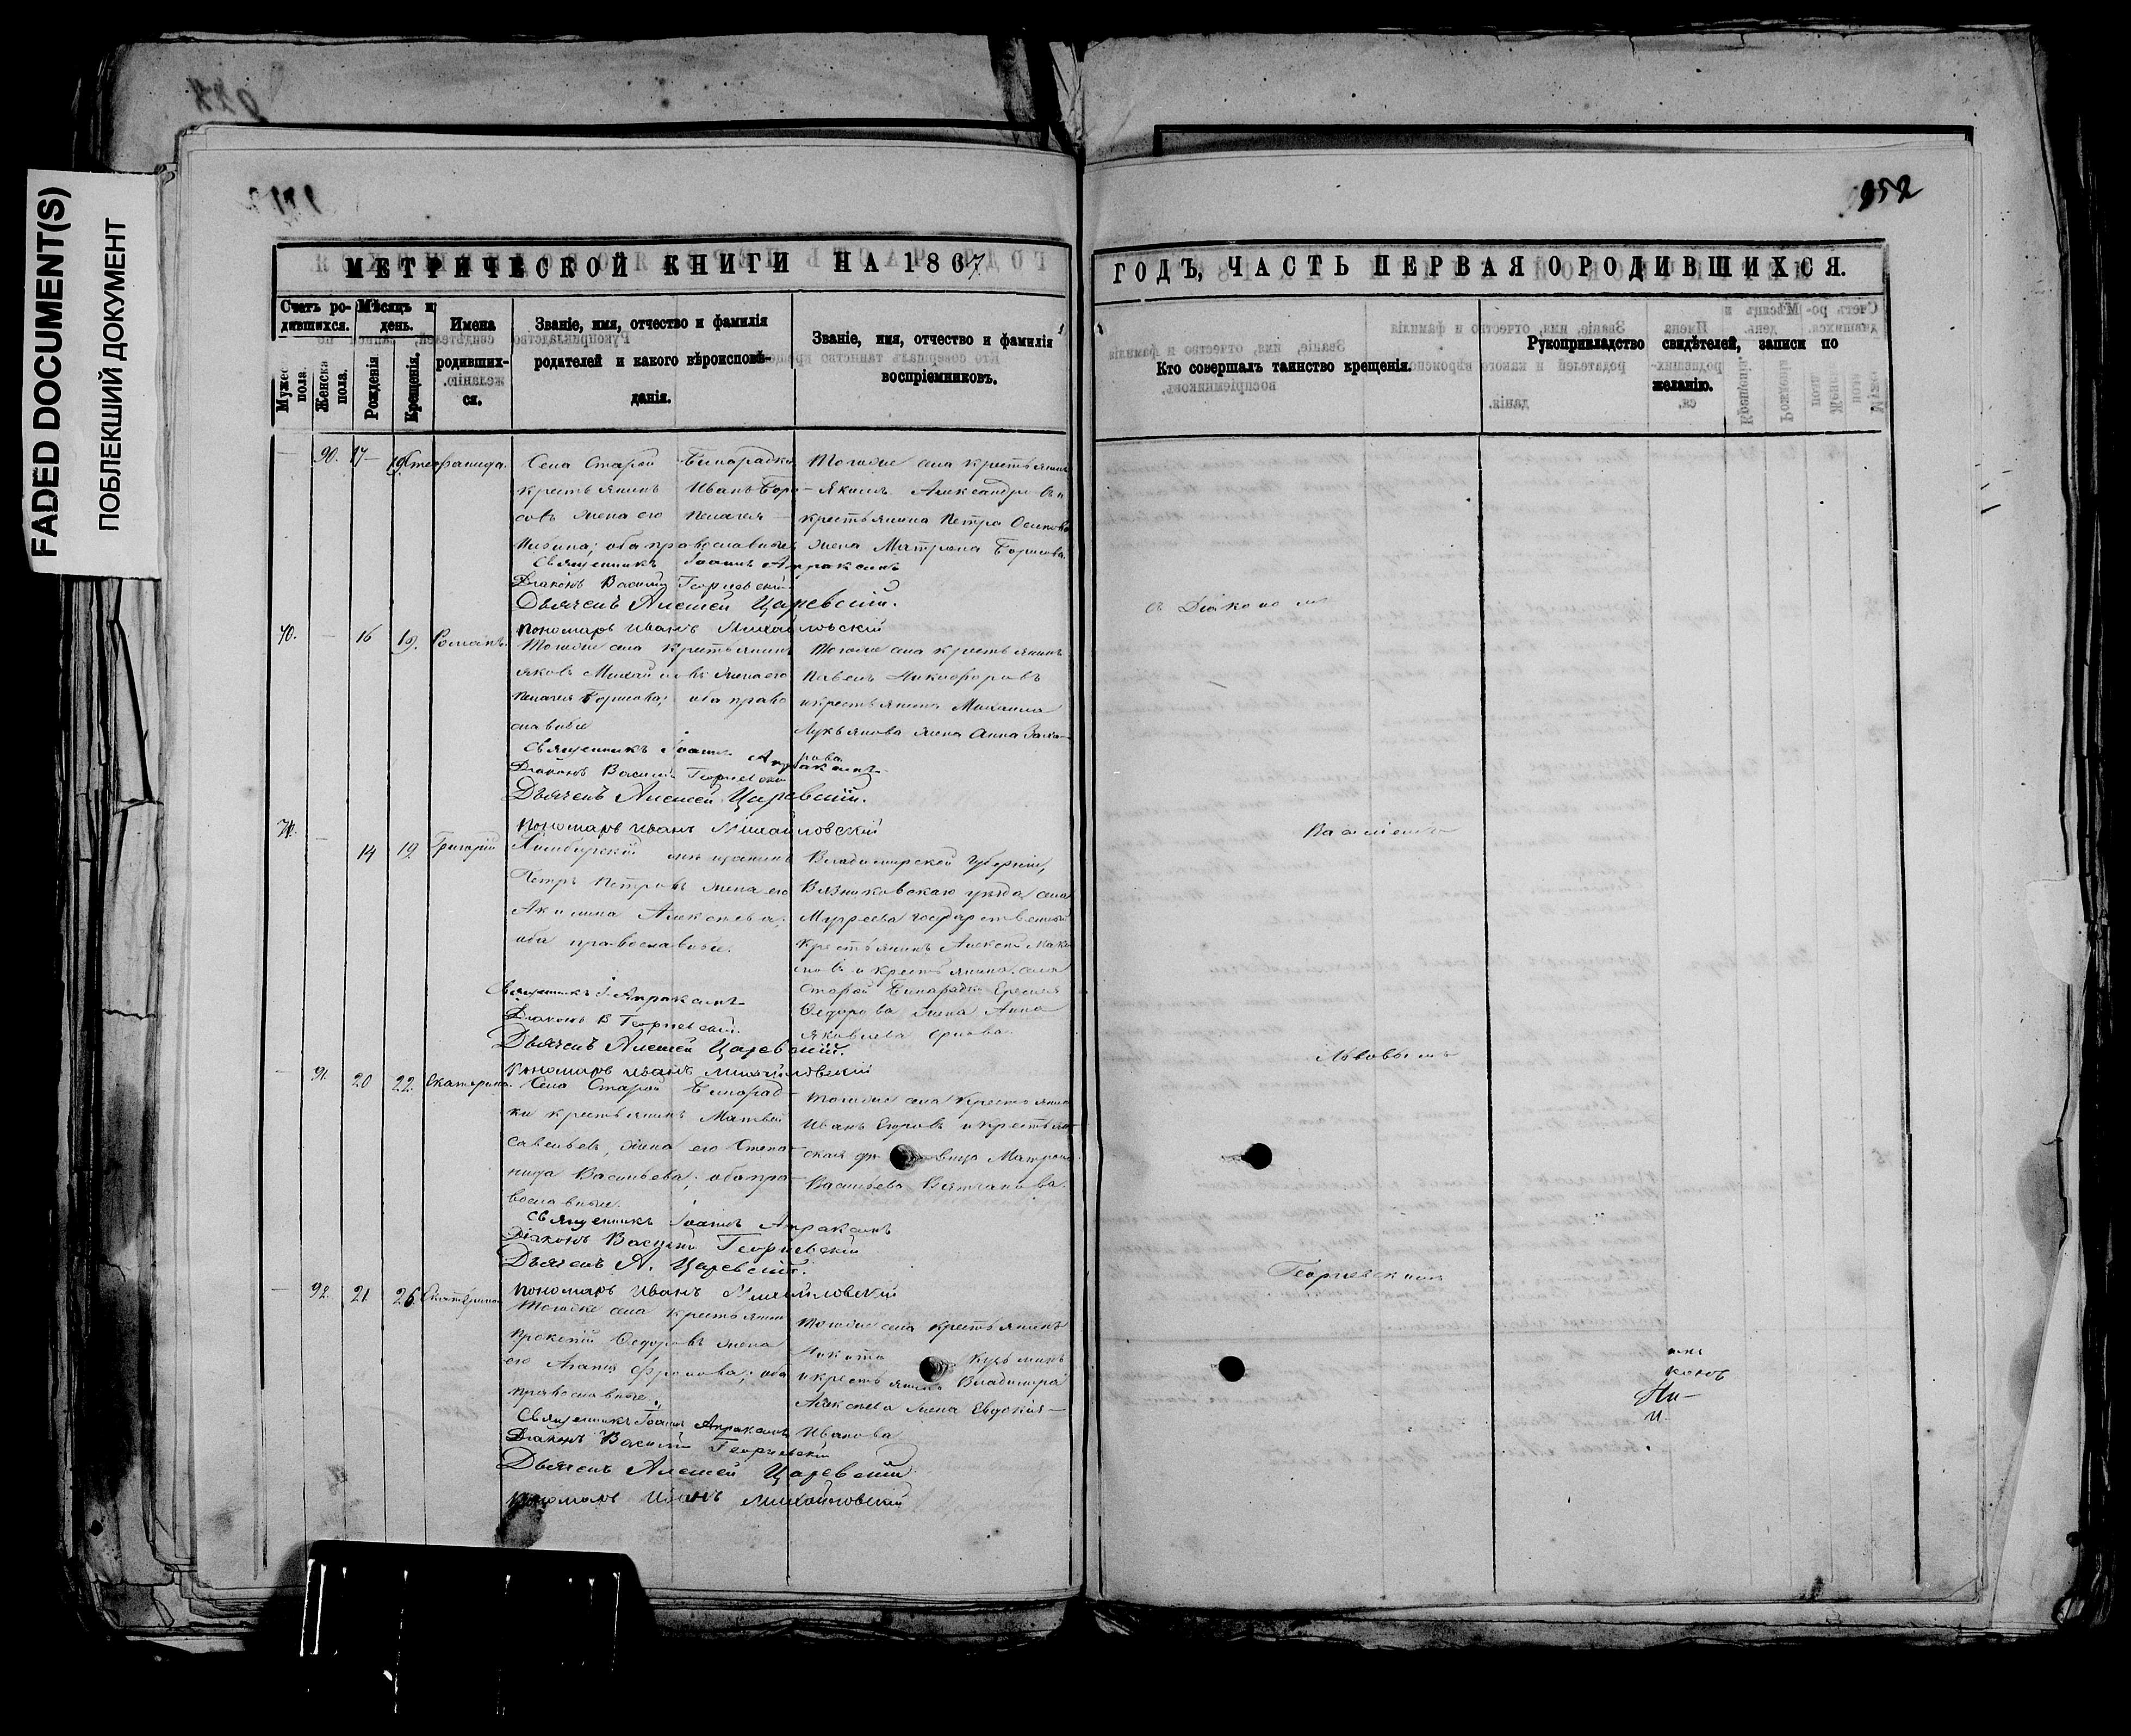 FADED DOCUMENT(S)
ПОБЛЕКШИЙ ДОКУМЕНТ
952
МЕТРИЧЕСКОЙ КНИГИ НА 1867
ГОДЪ, ЧАСТЬ ПЕРВАЯ О РОДИВШИХСЯ.
Счетъ ро-
дившихся.
Мужес
пола.
Женска
пола.
Мѣсяцъ и
день.
Рожденія
Крещенія.
Имена
родивших-
ся.
Званіе, имя, отчество и фамилія
родителей и какого вѣроисповѣ-
данія.
Званіе, имя, отчество и фамилія
воспріемниковъ.
Кто совершалъ таинство крещенія.
Рукоприкладство свидѣтелей, записи по
желанію.
90. 17 19. Стефанида.
Села Старой Бинарадки
крестьянинъ Иванъ Бори-
совъ жена его Пелагея
оба православные
Священникъ Іоаннъ Апраксинъ
Діаконъ Василій Георгіевскій
Дьячекъ Алексей Царевскій.
Пономарь Иванъ Михайловскій
Тогоже села крестьянинъ
Якимъ Александровъ и
крестьянина Петра Осипова
жена Матрона Борисова.
съ Діакономъ
70. 16 19. Романъ.
Тогоже села крестьянинъ
Яковъ Михайловъ жена его
Пелагея Борисова; оба право
славные
Священникъ Іоаннъ Апраксинъ
Діаконъ Василій Георгіевскій
Дьячекъ Алексей Царевскій.
Пономарь Иванъ Михайловскій
Тогоже села крестьянинъ
Павелъ Никифоровъ
и крестьянина Михаила
Лукьянова жена Анна Заха-
рова
Василіемъ
71. 14 19 Григорій
Симбирскій мѣщанинъ
Петръ Петровъ жена его
Акилина Алексѣева;
оба православные.
Священникъ І. Апраксинъ
Діаконъ В Георгіевскій.
Дьячекъ Алексей Царевскій.
Пономарь Иванъ Михайловскій
Владимирской Губерніи,
Вязниковскаго уѣзда села
государственный
крестьянинъ Алексей Макси
мовъ и крестьянина села
Старой Бинарадки
Ѳедорова жена Анна
Яковлева
Львовымъ
91. 20 22. Екатерина.
Села Старой Бинарад-
ки крестьянинъ Матвей
Савельевъ, жена его Степа-
нида Васильева; оба пра-
вославные.
Священникъ Іоаннъ Апраксинъ
Діаконъ Василій Георгіевскій
Дьячекъ А. Царевскій.
Пономарь Иванъ Михайловскій
Тогоже села крестьянинъ
Иванъ Егоровъ и крестьян-
ская дѣвица Матрона
Васильева
Георгіевскимъ
92. 21 26. Екатерина
Тогоже села крестьянинъ
Прокопій Ѳедоровъ жена
его Агапія Фролова; оба
православные.
Священникъ Іоаннъ Апраксинъ
Діаконъ Василій Георгіевскій
Дьячекъ Алексей Царевскій
Пономарь Иванъ Михайловскій
Тогоже села крестьянинъ
Никита Кузьминъ
и крестьянина Владимира
Алексѣева жена Евдокія
Иванова